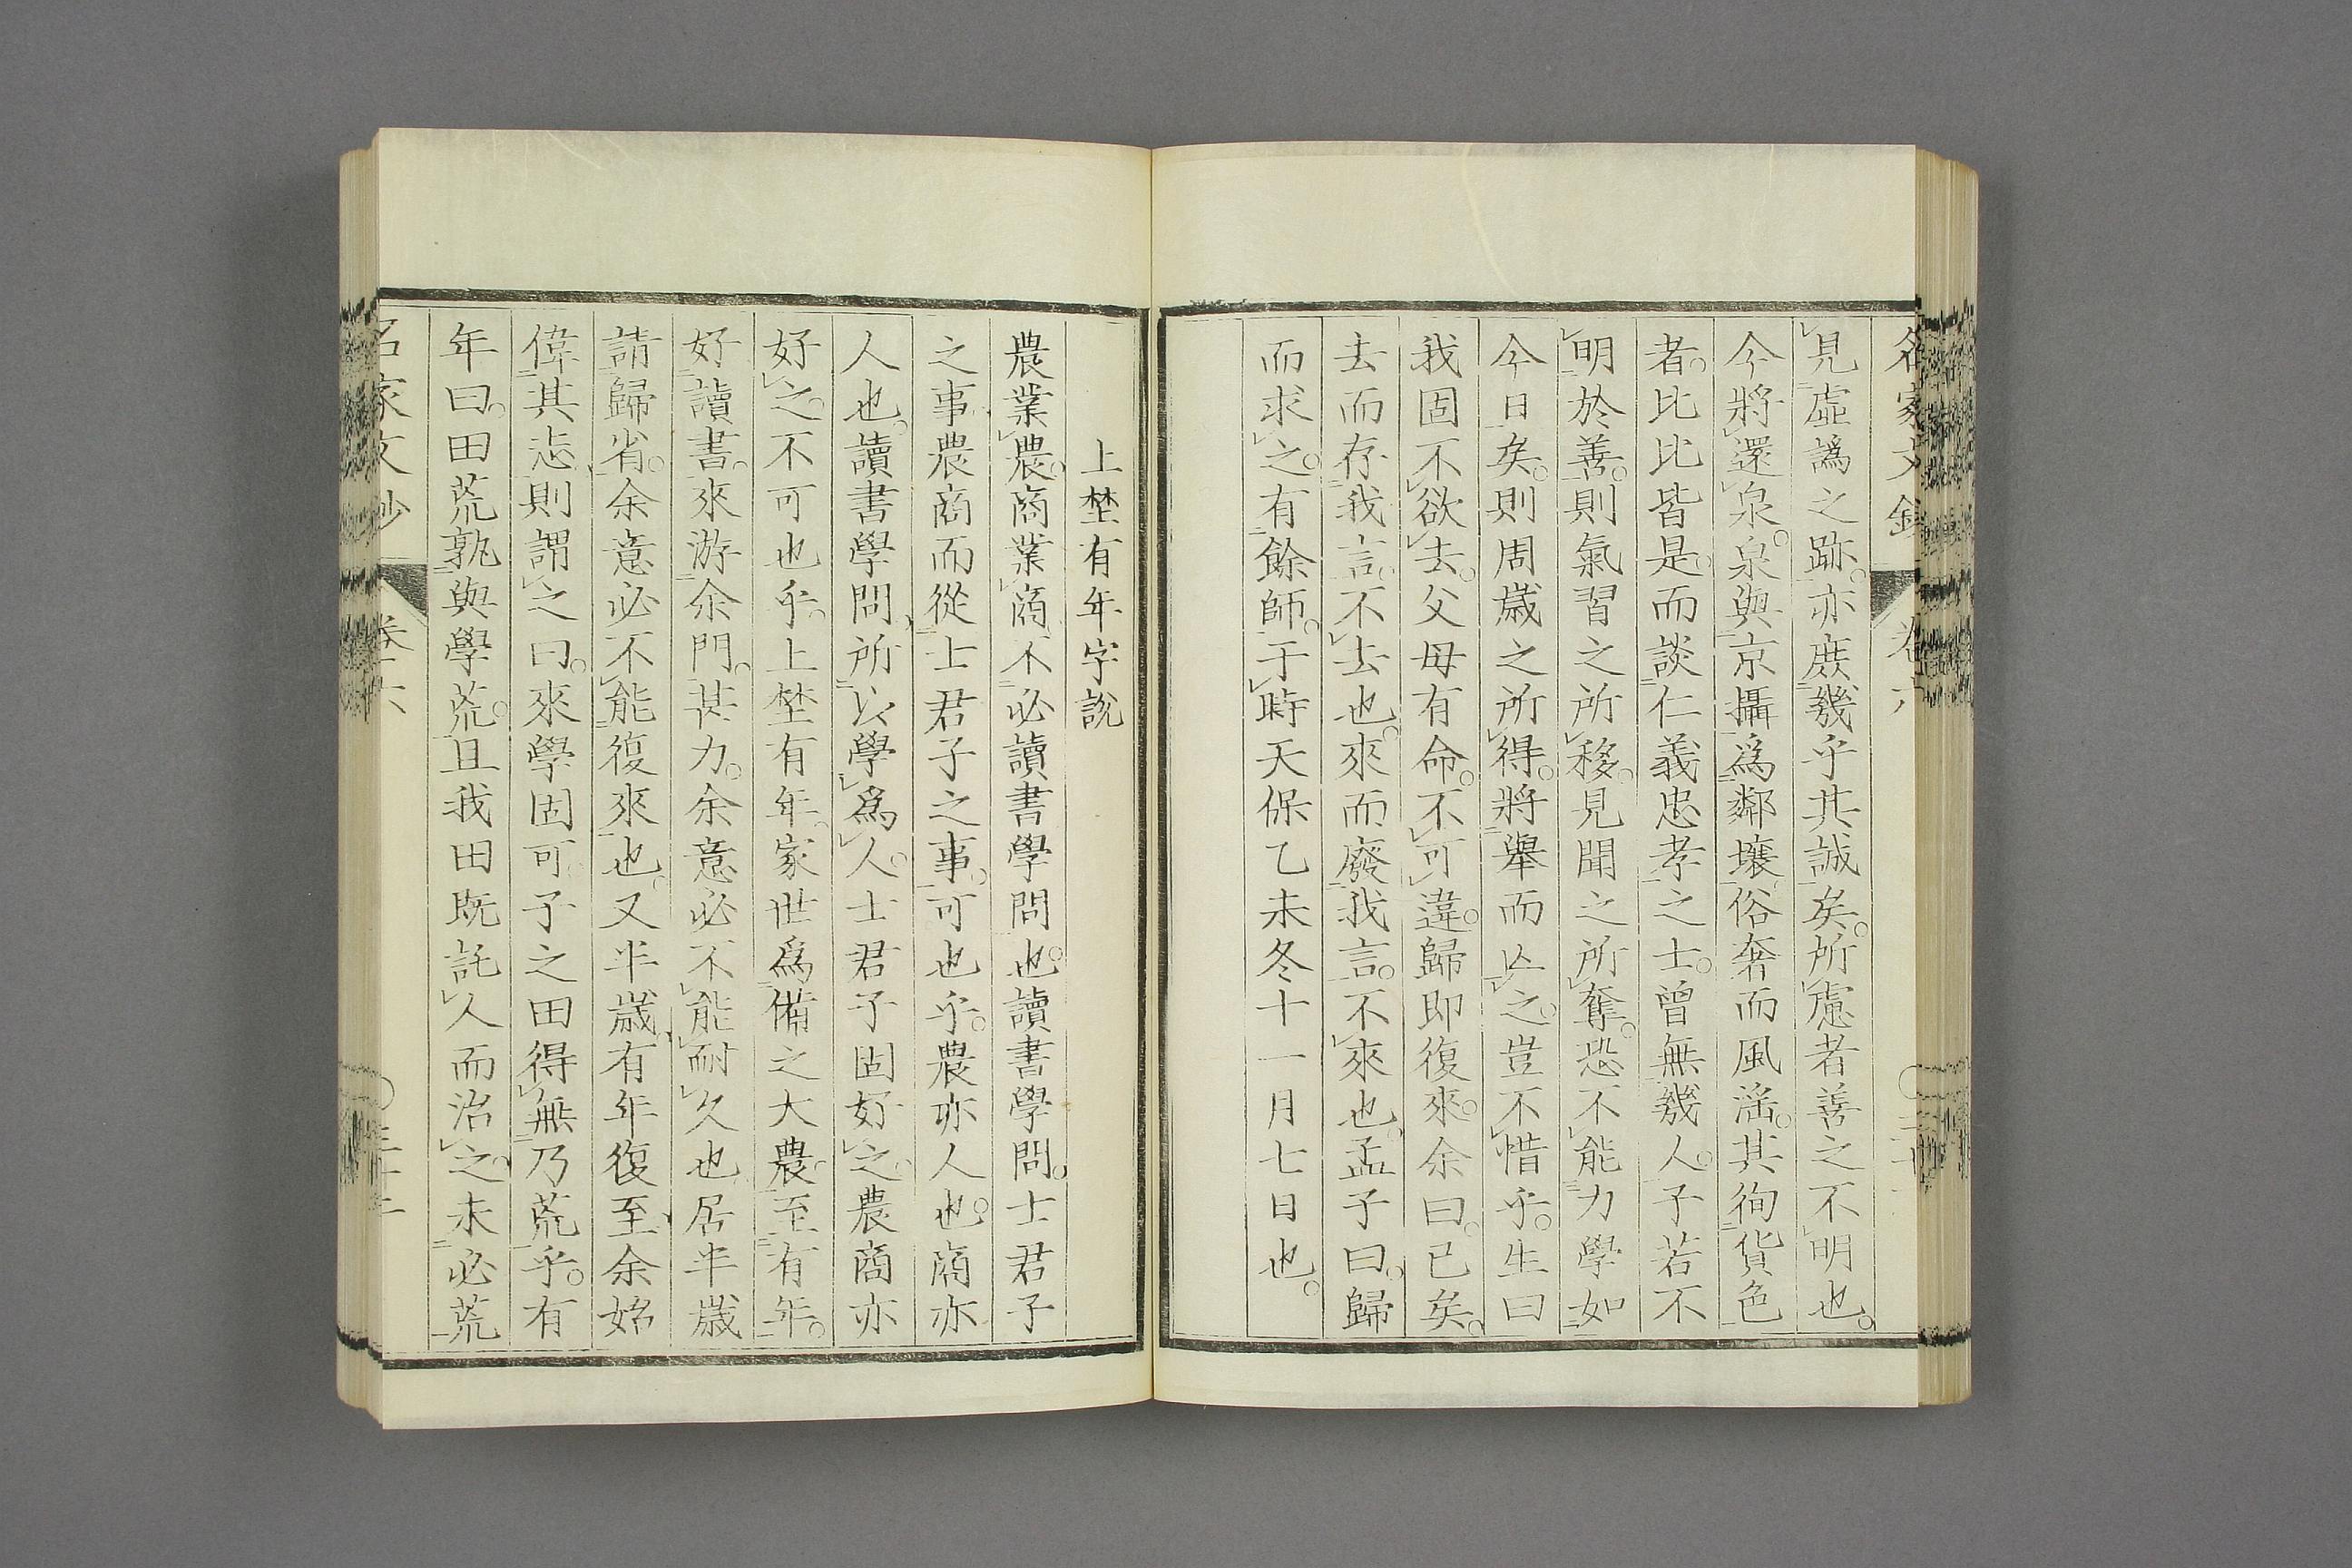 見虛譌之跡亦庻幾乎其誠矣所慮者善之不明也
今將還泉泉與京攝爲鄰壤俗奢而風滛其徇貨色
者比比皆是而談仁義忠孝之士曾無幾人子若不
明於善則氣習之所移見聞之所奪恐不能力學如
今日矣則周歲之所得將舉而亾之豈不惜乎生曰
我固不欲去父母有命不可違歸即復來余曰已矣
去而存我言不去也來而廢我言不來也孟子曰歸
而求之有餘師于時天保乙未冬十一月七日也
上埜有年字說
農業農商業商不必讀書學問也讀書學問士君子
之事農商而從士君子之事可也乎農亦人也商亦
人也讀書學問所以學爲人士君子固好之農商亦
好之不可也乎上埜有年家世爲備之大農至有年
好讀書來游余門甚力余意必不能耐久也居半歲
請歸省余意必不能復來也又半歲有年復至余始
偉其志則謂之曰來學固可子之田得無乃荒乎有
年曰田荒孰與學荒且我田既託人而治之未必荒
名家文抄
卷六